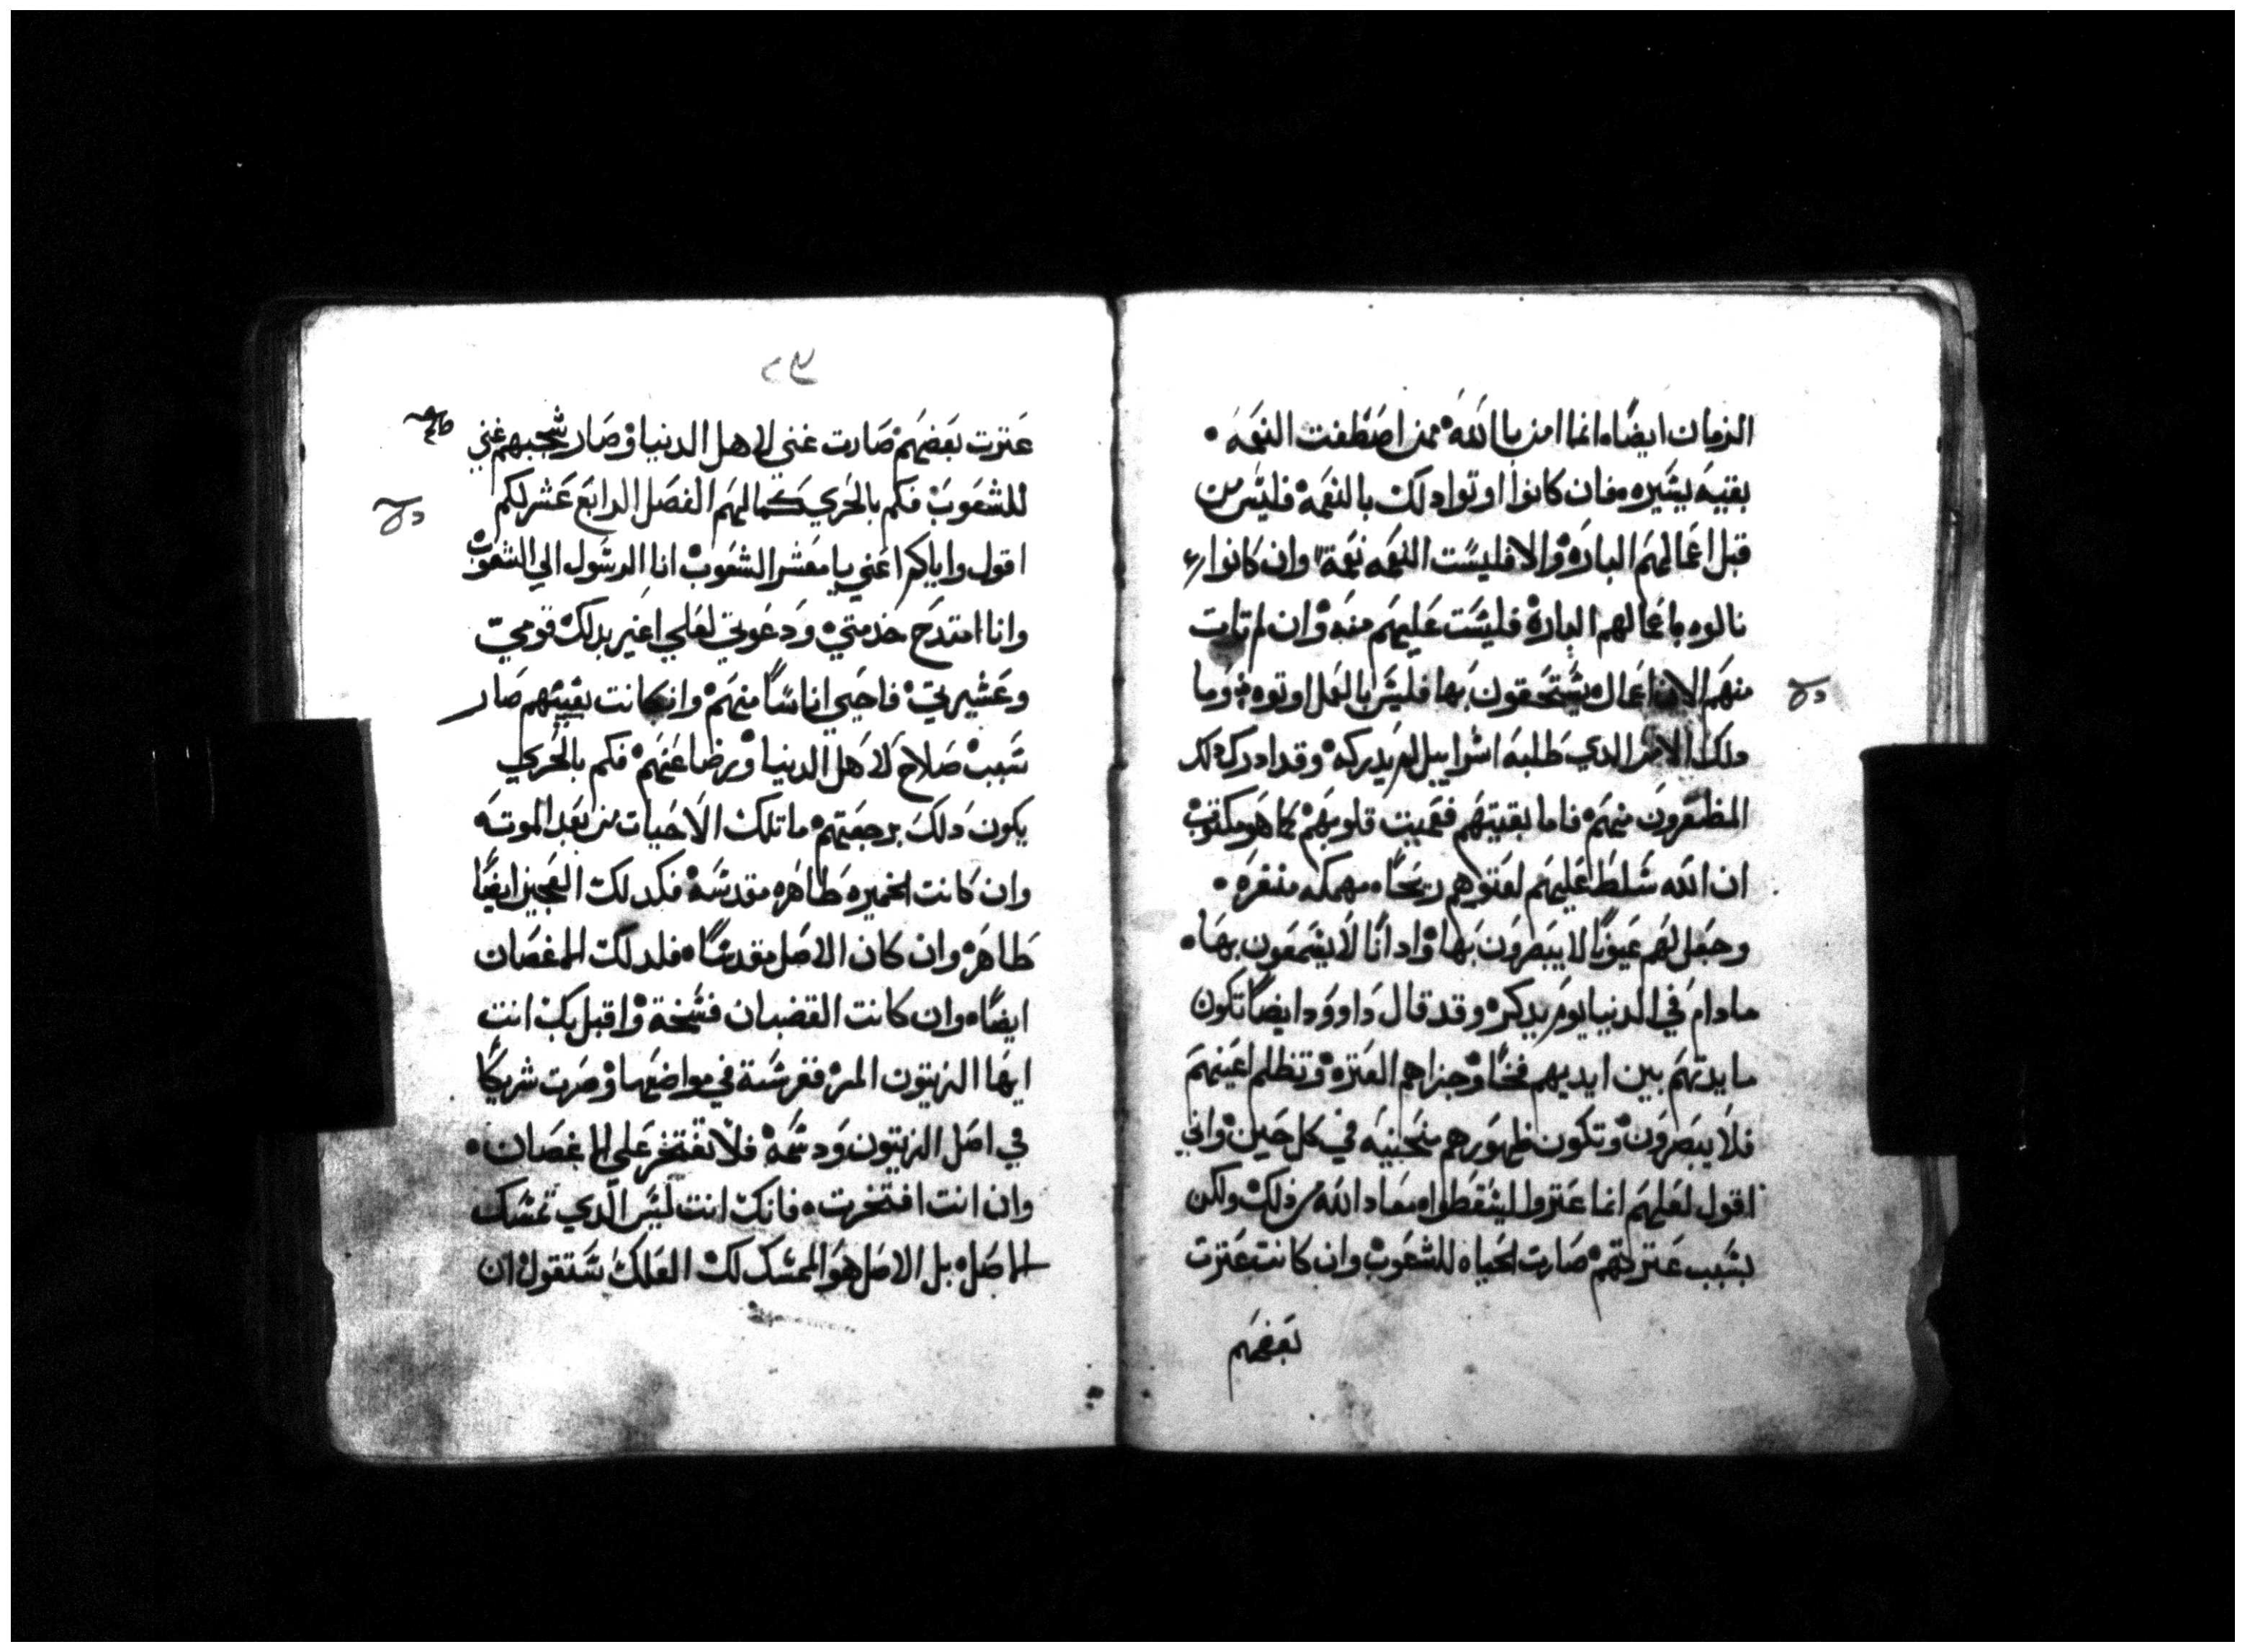 الزمان ايضًا انما امن بالله ممن اصطفت النعمه
بقيه يسيره فان كانوا اوتوا دلك بالنعمه فليس من
قبل اعمالهم الباره والا فليست النعمه نعمة وان كانوا
نالوه باعمالهم الباره فليست عليهم منه وان لم تات
منهم الان اعمال يستحقون بها فليس بالعمل اوتوه وما
دلك الامر الدي طلبه اسراييل لم يدركه وقد ادرك دلك
المظفرون منهم فاما بقيتهم فعميت قلوبهم كما هو مكتوب
ان الله سلط عليهم لعتوهم ريحًا مهمكه منغره
وجعل لهم عيونًا لا يبصرون بها وادانًا لا يسمعون بها
مادام في الدنيا يوم يدكر وقد قال داوود ايضًا تكون
مايدتهم بين ايديهم فخًا وجزاهم العتره وتظلم اعينهم
فلا يبصرون وتكون ظهورهم منحنيه في كل حين واني
اقول لعلهم انما عتروا ليسقطوا معاد الله من دلك ولكن
بسبب عترتهم صارت الحياه للشعوب وان كانت عترت
بعضهم
عترت بعضهم صارت غني لاهل الدنيا وصار شجبهم غني
للشعوب فكم بالحري كمالهم الفصل الرابع عشر لكم
اقول واياكم اعني يا معشر الشعوب انا الرسول الي الشعوب
وانا امتدح خدمتي ودعوتي لعلي اغير بدلك قومي
وعشيرتي فاحيي اناسًا منهم وان كانت بقيتهم صار
سبب صلاح لاهل الدنيا ورضا عنهم فكم بالحري
يكون دلك برجعتهم ما تلك الا حيات من بعد الموته
وان كانت الخميره طاهره مقدسه فكدلك العجين ايضًا
طاهر وان كان الاصل مقدسًا فلدلك الاغصان
ايضًا وان كانت القضبان فسخة واقبل بك انت
ايها الزيتون المر فغرسة في مواضعها وصرت شريكًا
في اصل الزيتون ودسمه فلا تفتخر علي الاغصان
وان انت افتخرت فانك انت ليس الدي تمسك
الاصل بل الاصل هو الممسك لك العلك ستقول ان